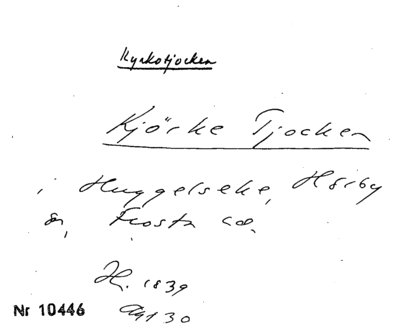 Kyrkotjocken
Kjörke Tjocken
i Huggelseke, Hörby
sn, Frosta hd.
H. 1839
Nr 10446